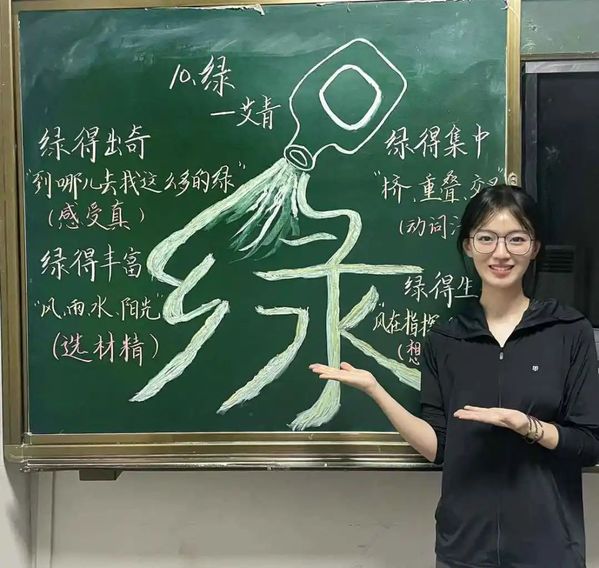 10.绿
—艾青
绿得出奇
"到哪儿去找这么多的绿"
(感受真)
绿得丰富
"风、雨水、阳光"
(选材精)
绿得集中
"挤、重叠、交
(动词
绿得生
"风在指挥
(想
绿